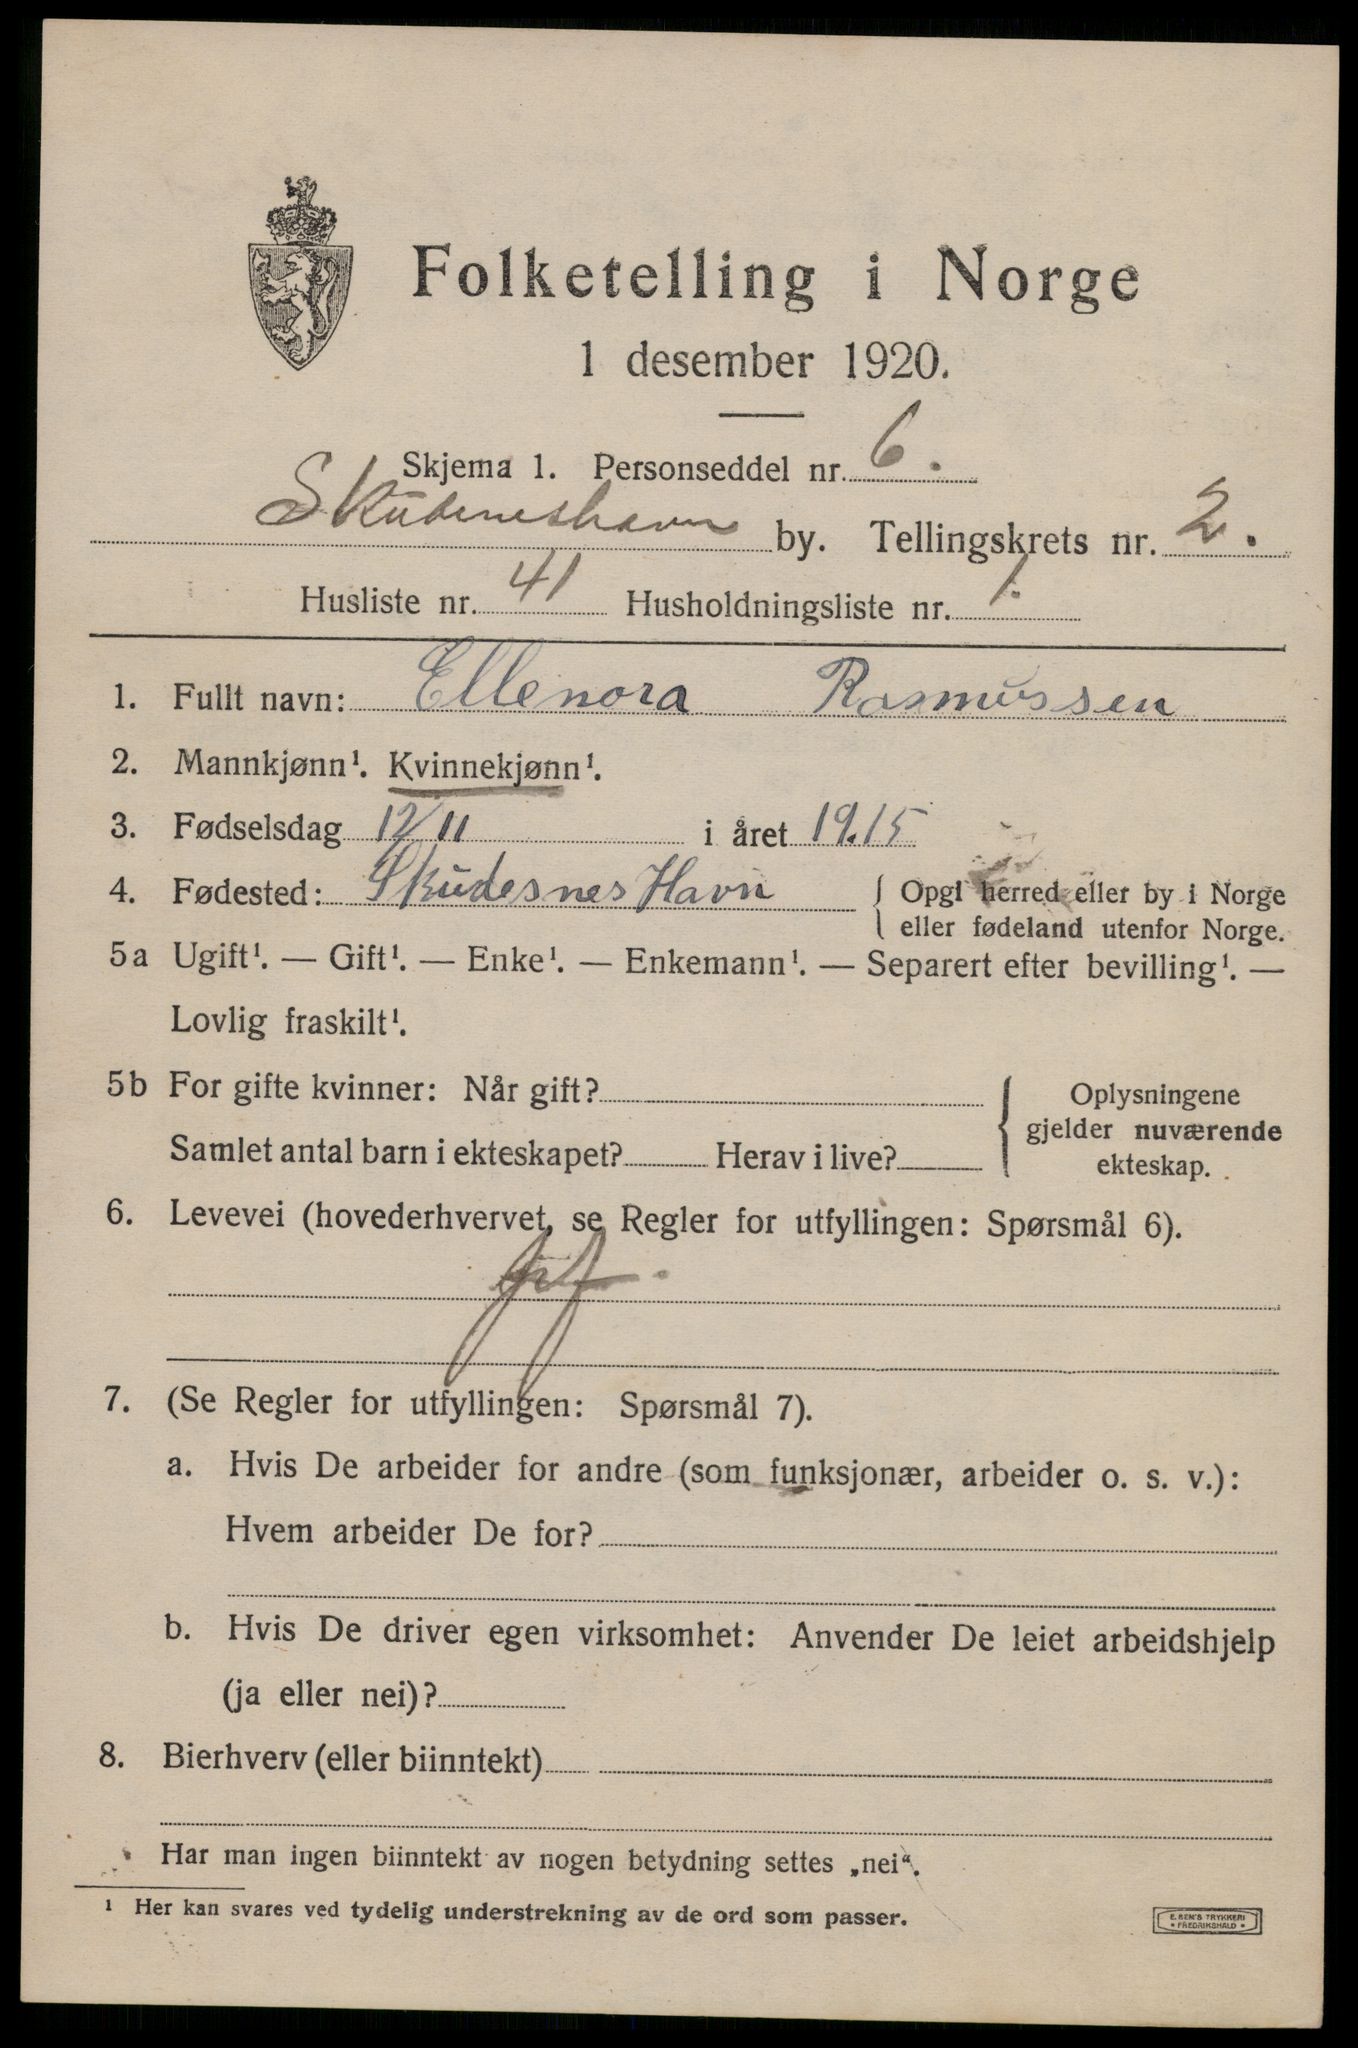 Folketelling i Norge
1 desember 1920.
Skjema 1. Personseddel nr. 6.
Skudeneshavn by. Tellingskrets nr. 2.
Husliste nr. 41 Husholdningsliste nr. 1.
1. Fullt navn: Ellenora Rasmussen
2. Mannkjønn¹. Kvinnekjønn¹.
3. Fødselsdag 12/11 i året 1915
4. Fødested: SkudesnesHavn { Opgi herred eller by i Norge
eller fødeland utenfor Norge.
5a Ugift¹. — Gift¹. — Enke¹. — Enkemann¹. — Separert efter bevilling¹. —
Lovlig fraskilt¹.
5b For gifte kvinner: Når gift?
Samlet antal barn i ekteskapet? Herav i live?
Oplysningene
gjelder nuværende
ekteskap.
6. Levevei (hovederhvervet, se Regler for utfyllingen: Spørsmål 6).
7. (Se Regler for utfyllingen: Spørsmål 7).
a. Hvis De arbeider for andre (som funksjonær, arbeider o. s. v.):
Hvem arbeider De for?
b. Hvis De driver egen virksomhet: Anvender De leiet arbeidshjelp
(ja eller nei)?
8. Bierhverv (eller biinntekt)
Har man ingen biinntekt av nogen betydning settes „nei“.
¹ Her kan svares ved tydelig understrekning av de ord som passer.
E. SEM'S TRYKKERI
• FREDRIKSHALD •